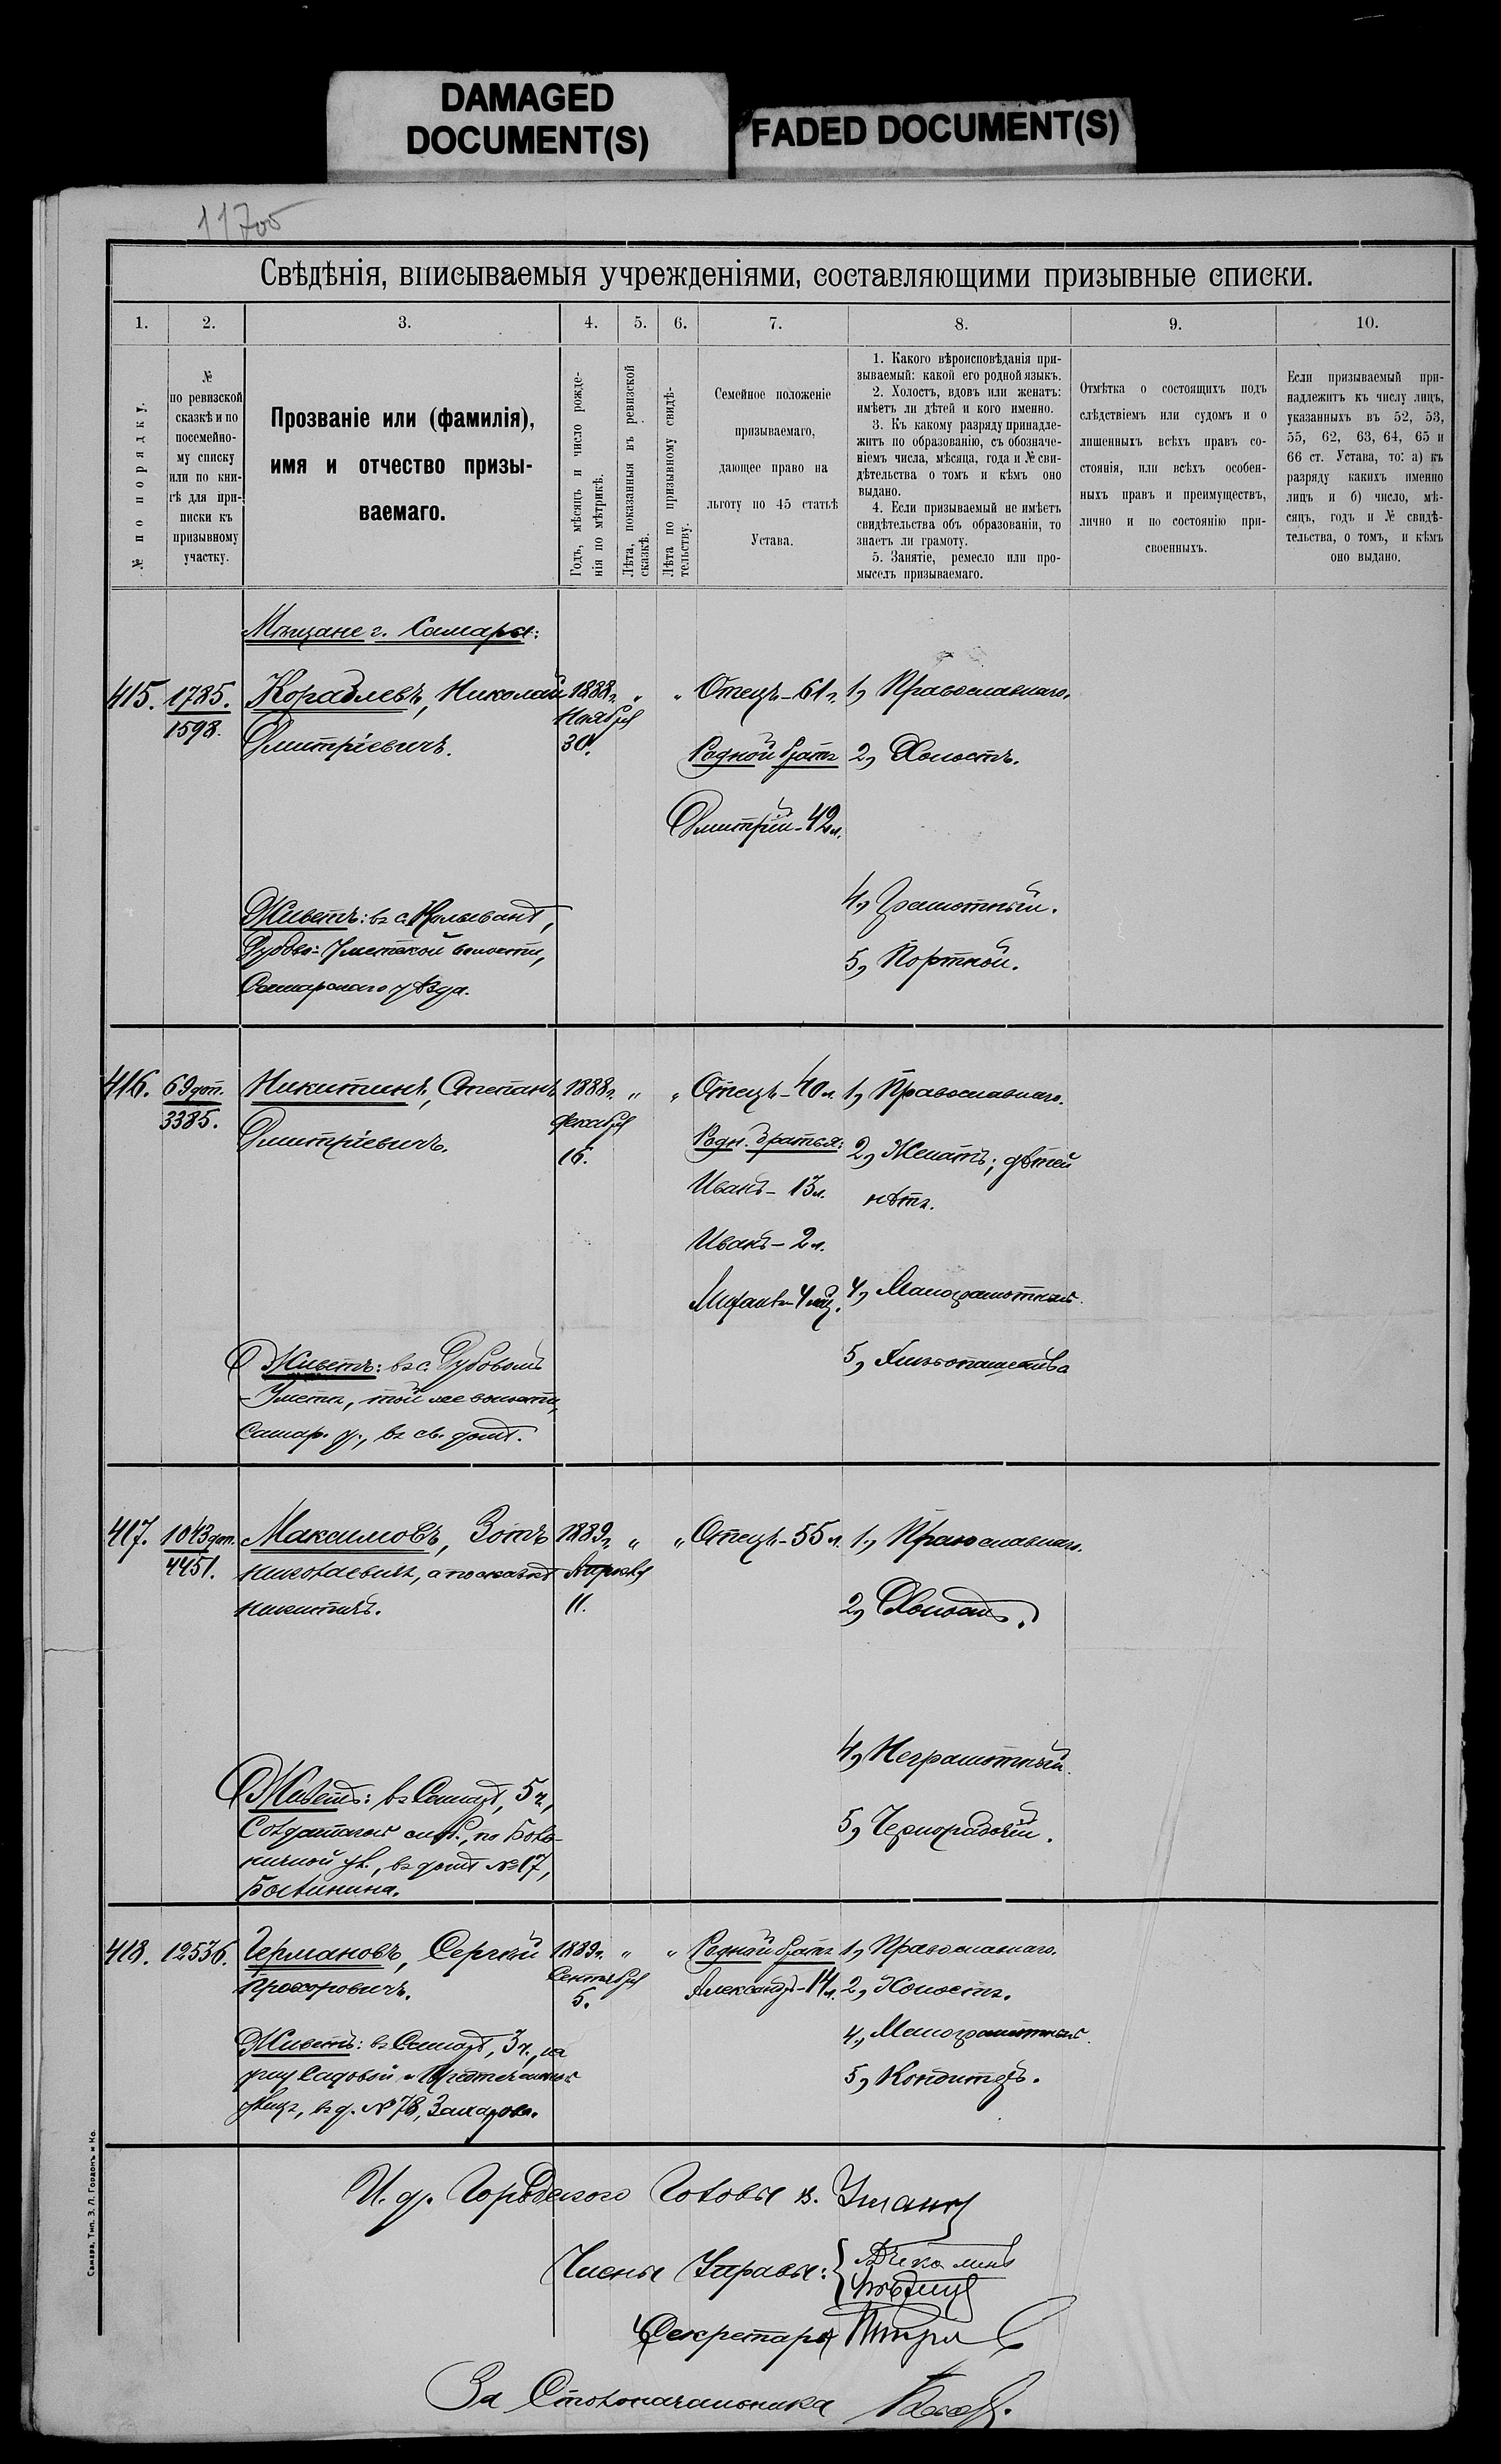 DAMAGED
DOCUMENT(S)
FADED DOCUMENT(S)
Свѣдѣнія, вписываемыя учрежденіями, составляющими призывные списки.
1. 2. 3. 4. 5. 6. 7. 8. 9. 10.
№ по порядку.
№
по ревизской
сказкѣ и по
посемейно-
му списку
или по кни-
гѣ для при-
писки къ
призывному
участку.
Прозваніе или (фамилія),
имя и отчество призы-
ваемаго.
Годъ, мѣсяцъ и число рожде-
нія по метрикѣ.
Лѣта, показанныя въ ревизской
сказкѣ.
Лѣта по призывному свидѣ-
тельству.
Семейное положеніе
призываемаго,
дающее право на
льготу по 45 статьѣ
Устава.
1. Какого вѣроисповѣданія при-
зываемый: какой его родной языкъ.
2. Холостъ, вдовъ или женатъ:
имѣетъ ли дѣтей и кого именно.
3. Къ какому разряду принадле-
житъ по образованію, съ обозначе-
ніемъ числа, мѣсяца, года и № сви-
дѣтельства о томъ и кѣмъ оно
выдано.
4. Если призываемый не имѣетъ
свидѣтельства объ образованіи, то
знаетъ ли грамоту.
5. Занятіе, ремесло или про-
мыселъ призываемаго.
Отмѣтка о состоящихъ подъ
слѣдствіемъ или судомъ и о
лишенныхъ всѣхъ правъ со-
стоянія, или всѣхъ особен-
ныхъ правъ и преимуществъ,
лично и по состоянію при-
своенныхъ.
Если призываемый при-
надлежитъ къ числу лицъ,
указанныхъ въ 52, 53,
55, 62, 63, 64, 65 и
66 ст. Устава, то: а) къ
разряду какихъ именно
лицъ и б) число, мѣ-
сяцъ, годъ и № свидѣ-
тельства, о томъ, и кѣмъ
оно выдано.
Мѣщане г. Самары:
415. 1785. Кораблевъ, Николай 1888г. " " Отецъ - 61 г. 1, Православнаго.
1598. Дмитріевичъ. Ноября 30. Родной братъ 2, Холостъ.
Дмитрій - 42 л.
4, Грамотный.
5, Портной.
Живетъ: въ с. Колывани,
Дубово-Уметской волости,
Самарскаго уѣзда.
416. 69 доп. Никитинъ, Степанъ 1888г. " " Отецъ - 40 л. 1, Православнаго.
3385. Дмитріевичъ. Декабря 16. Родн. братья: 2, Женатъ; дѣтей
Иванъ - 13 л. нѣтъ.
Иванъ - 2 л.
4, Малограмотный.
5, Хлѣбопашество
Живетъ: въ с. Дубовомъ
Уметѣ, той же волости,
Самар. у., въ св. домѣ.
417. 1043 доп. Максимовъ, Зотъ 1889г. " " Отецъ - 55 л. 1, Православнаго.
4451. Николаевичъ, а по сказкѣ Апрѣля
Никитинъ. 11. 2, Холостъ.
4, Неграмотный.
5, Чернорабочій.
Живетъ: въ Самарѣ, 5 ч.,
Солдатской слоб.,
въ домѣ № 17,
418. 12536. Германовъ, Сергѣй 1889г. " " Родной братъ 1, Православнаго.
Прохоровичъ. Сентября 5. Александръ - 14 л. 2, Холостъ.
4, Малограмотный.
5, Кондитеръ.
Живетъ: въ Самарѣ, 3 ч., на
углу Садовой и
улицъ, въ д. № 78, Захарова.
И. д. Городского Головы
Члены Управы:
Секретарь
За Столоначальника
Самара, Тип. З. Л. Гордонъ и Ко.